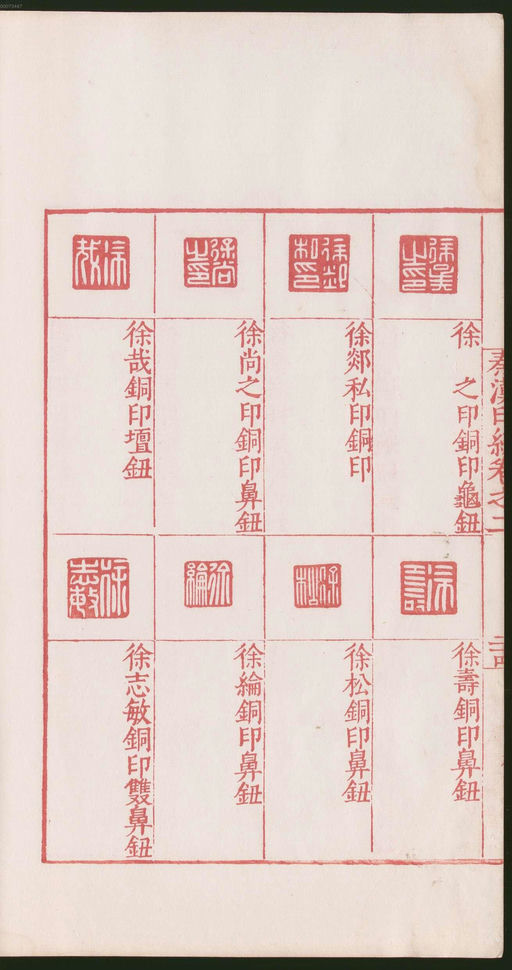 00073447
秦漢印統卷之二
徐 之印銅印龜鈕
徐郯私印銅印
徐尚之印銅印鼻鈕
徐哉銅印壇鈕
徐壽銅印鼻鈕
徐松銅印鼻鈕
徐綸銅印鼻鈕
徐志敏銅印雙鼻鈕